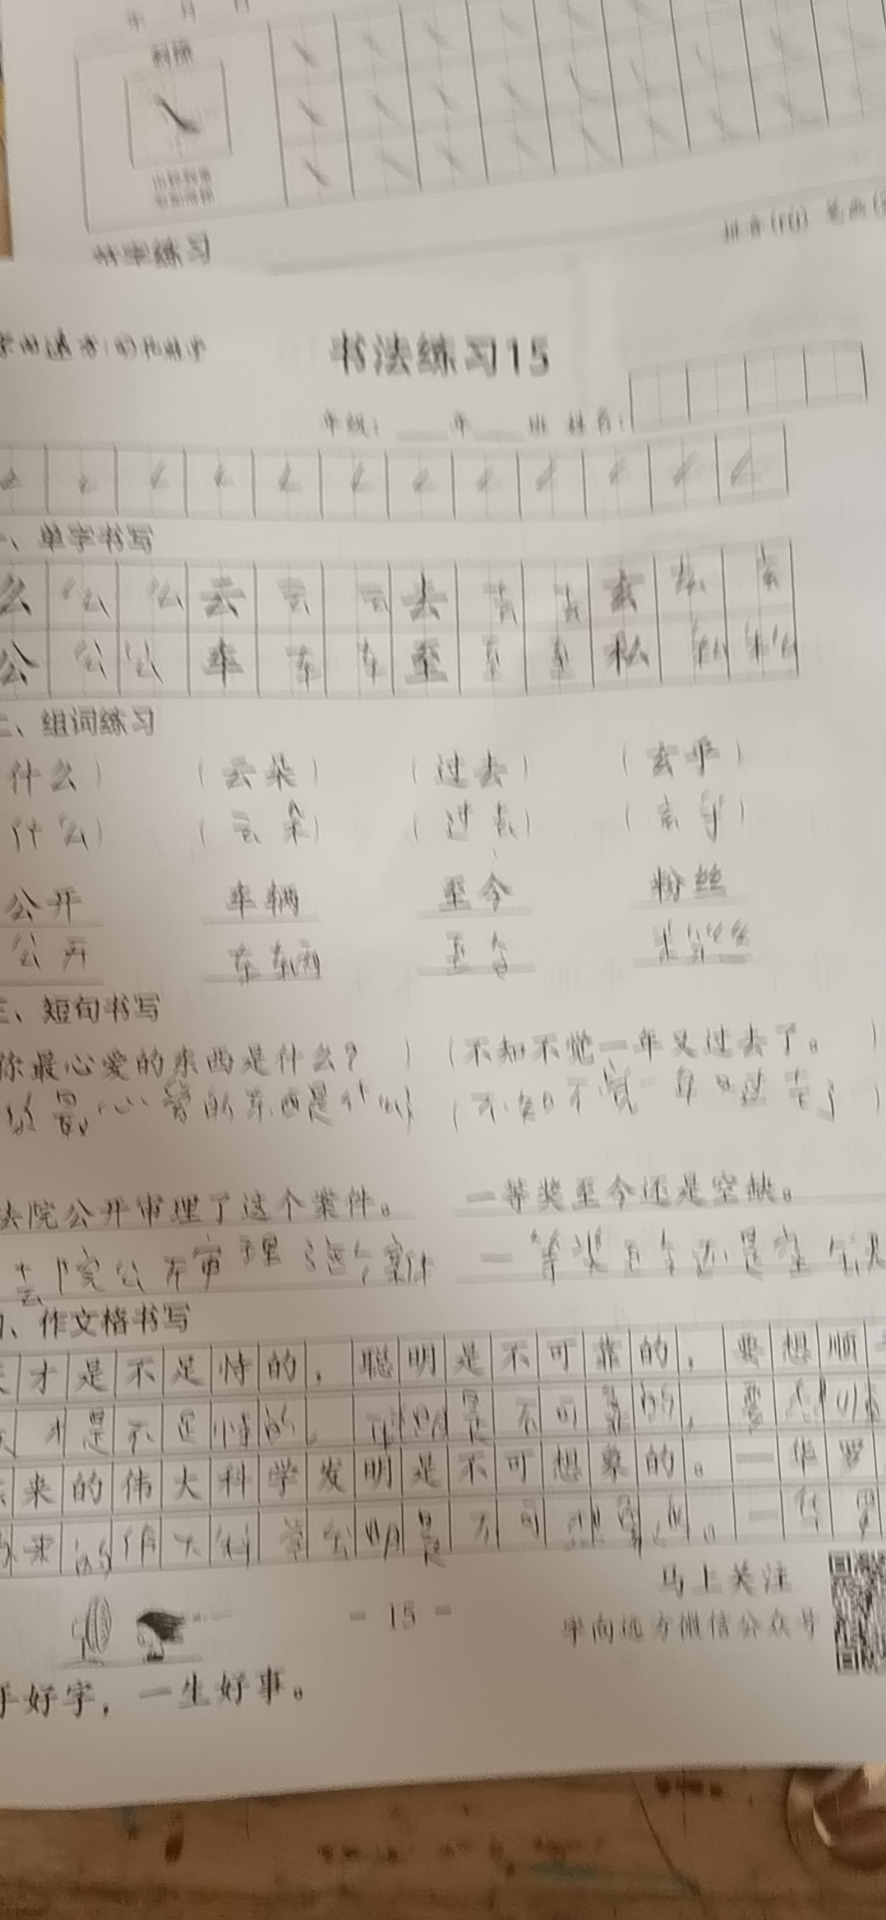 年 月 日
书法练习15
年级：____年____班 姓名：
一、单字书写
么 么 么 云 云 云 去 去 去 玄 玄 玄
公 公 公 车 车 车 至 至 至 私 私 私
二、组词练习
什么） （云朵） （过去） （玄乎）
什么） （云朵） （过去） （玄乎）
公开 车辆 至今 粉丝
公开 车辆 至今 粉丝
三、短句书写
你最心爱的东西是什么？ ） （不知不觉一年又过去了。 ）
最心爱的东西是什么 （不知不觉一年又过去了 ）
法院公开审理了这个案件。 一等奖至今还是空缺。
法院公开审理了这个案件 一等奖至今还是空缺
、作文格书写
才是不足恃的，聪明是不可靠的，要想顺
才是不足恃的，聪明是不可靠的，要想顺
来的伟大科学发明是不可想象的。—华罗
来的伟大科学发明是不可想象的。—华罗
- 15 -
马上关注
字向远方微信公众号
手好字，一生好事。